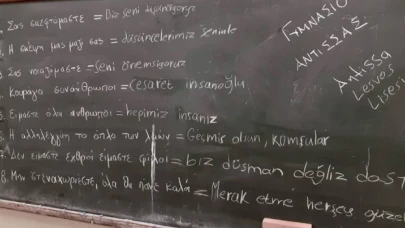 Σας σκεφτόμαστε = Biz seni düşünüyoruz
Η σκέψη μας μαζί σας = düşüncelerimiz seninle
Σας νοιαζόμαστε = seni önemsiyoruz
Κουράγιο συνάνθρωποι = cesaret insanoğlu
5. Είμαστε όλοι άνθρωποι = hepimiz insanız
6. Η αλληλεγγύη το όπλο των λαών = Geçmiş olsun, komşular
7. Δεν είμαστε εχθροί είμαστε φίλοι = biz düşman değiliz dost
8. Μην στεναχωριέστε, όλα θα πάνε καλά = Merak etme herşey güzel
ΓΥΜΝΑΣΙΟ
ΑΝΤΙΣΣΑΣ
Antissa
Lesvos
Lisesi